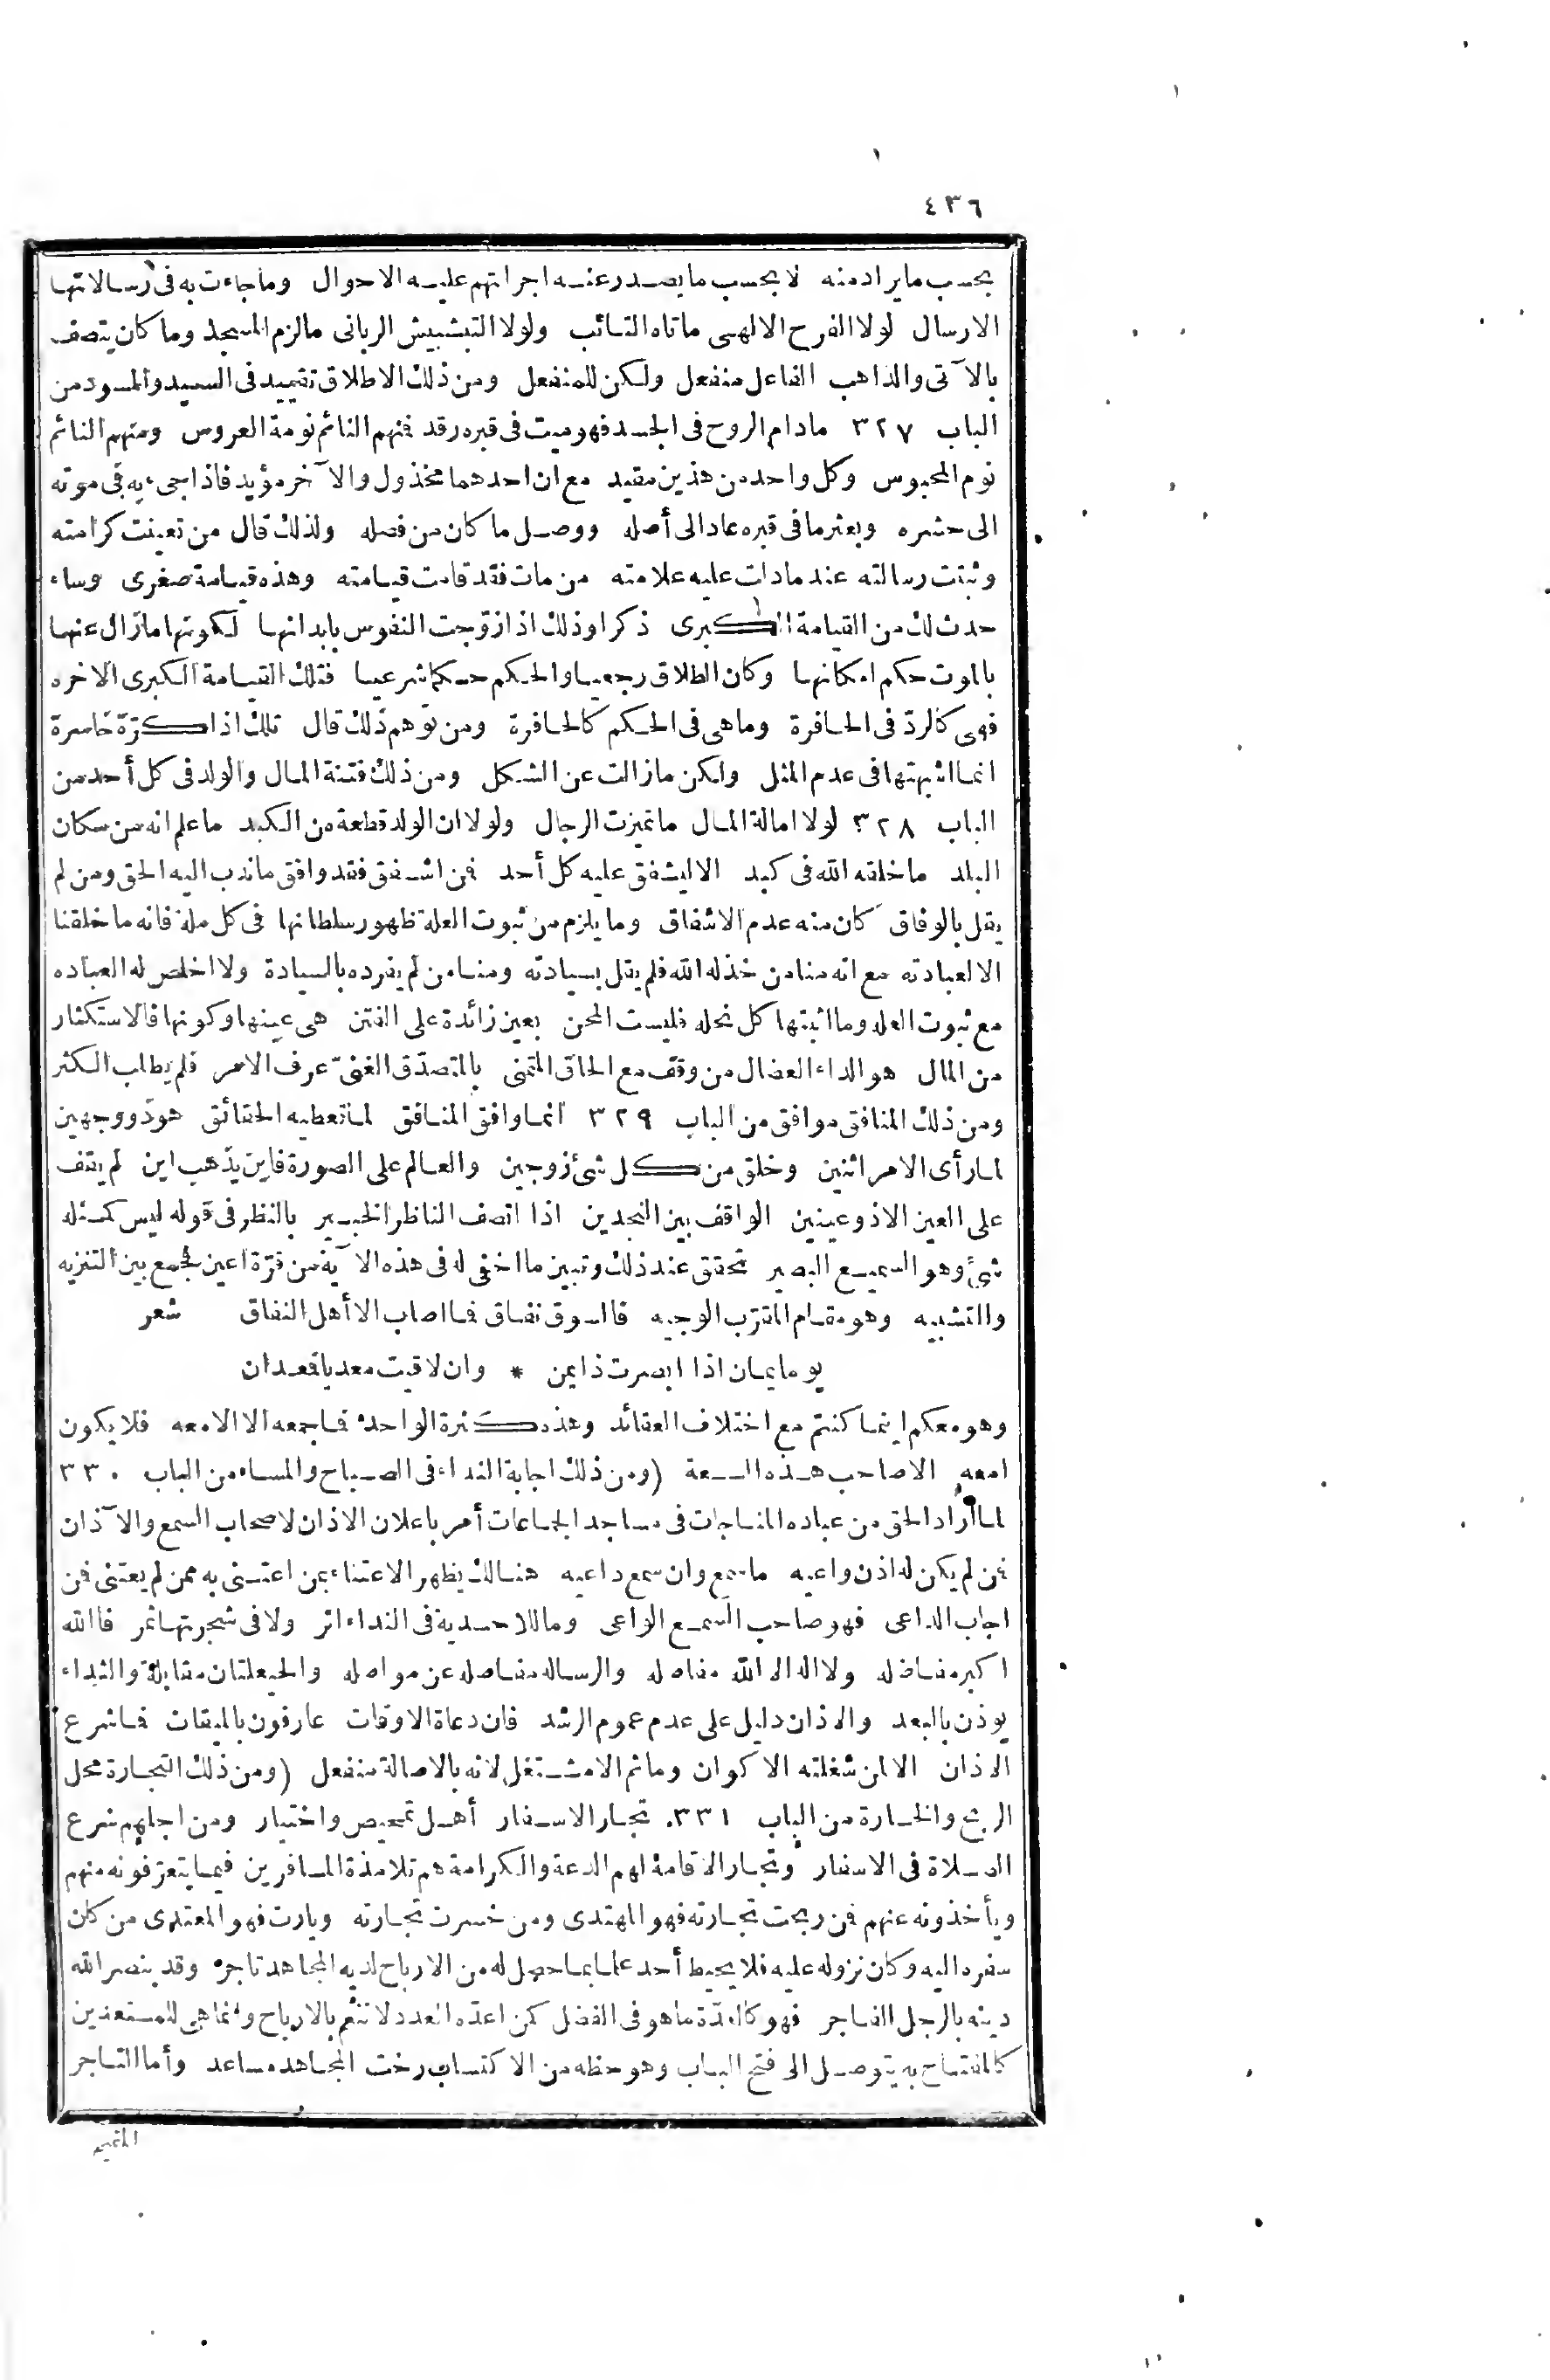 ٤٣٦
بحسب ما يراد منه لا بحسب ما يصدر عنه اجراتهم عليه الاحوال وما جاءت به فى رسالاتها
الارسال لولا الفرح الالهى ما تاه التائب ولولا التبشبيش الربانى ما لزم المسجد وما كان يتصف
بالآتى والذاهب الفاعل منفعل ولكن للمنفعل ومن ذلك الاطلاق تقييد فى السيد والمسود من
الباب ٣٢٧ مادام الروح فى الجسد فهو ميت فى قبره رقد فمنهم النائم نومة العروس ومنهم النائم
نوم المحبوس وكل واحد من هذين مقيد مع ان احدهما مخذول والآخر مؤيد فاذا جىء به فى موته
الى حشره وبعثر ما فى قبره عاد الى أصله ووصل ما كان من فصله ولذلك قال من تعينت كرامته
وثبتت رسالته عند ما دات عليه علامته من مات فقد قامت قيامته وهذه قيامة صغرى وساء
حدث لك من القيامة الكبرى ذكرا وذلك اذا زوّجت النفوس بابدانها لكونها ما زال عنها
بالموت حكم امكانها وكان الطلاق رجعيا والحكم حكما شرعيا فتلك القيامة الكبرى الاخره
فهى كالردّ فى الحافرة وما هى فى الحكم كالحافرة ومن توهم ذلك قال تلك اذا كرّة خاسرة
انما اشبهتها فى عدم المثل ولكن ما زالت عن الشكل ومن ذلك فتنة المال والولد فى كل أحد من
الباب ٣٢٨ لولا امالة المال ما تميزت الرجال ولولا ان الولد قطعة من الكبد ما علم انه من سكان
البلد ما خلقه الله فى كبد الا ليشفق عليه كل أحد فمن اشفق فقد وافق ما ندب اليه الحق ومن لم
يقل بالوفاق كان منه عدم الاشفاق وما يلزم من ثبوت العلة ظهور سلطانها فى كل ملة فانه ما خلقنا
الا لعبادته مع انه منا من خذله الله فلم يقل بسيادته ومنا من لم يفرده بالسيادة ولا اخلص له العباده
مع ثبوت العله وما اثبتها كل نحله فليست المحن بعين زائدة على الفتن هى عينها وكونها فالاستكثار
من المال هو الداء العضال من وقف مع الحاق المتمنى بالمتصدّق الغنىّ عرف الامر فلم يطلب الكثر
ومن ذلك المنافق موافق من الباب ٣٢٩ انما وافق المنافق لما تعطيه الحقائق هو ذو وجهين
لما رأى الامر اثنين وخلق من كل شئ زوجين والعالم على الصورة فاين يذهب اين لم يقف
على العين الا ذو عينين الواقف بين النجدين اذا اتصف الناظر الخبير بالنظر فى قوله ليس كمثله
شئ وهو السميع البصير تحقق عند ذلك وتبين ما اخفى له فى هذه الآية من قرّة اعين فجمع بين التنزيه
والتشبيه وهو مقام المقرّب الوجيه فالسوق نفاق فما اصاب الا أهل النفاق شعر
يوما يمان اذا ابصرت ذا يمن * وان لاقيت معديا فعدان
وهو معكم اينما كنتم مع اختلاف العقائد وهذه كثرة الواحد فما جمعه الا الامعه فلا يكون
امعه الا صاحب هذه السعة (ومن ذلك اجابة النداء فى الصباح والمساء من الباب ٣٣٠
لما أراد الحق من عباده المناجات فى مساجد الجماعات أمر باعلان الاذان لاصحاب السمع والآذان
فمن لم يكن له اذن واعيه ما سمع وان سمع داعيه هنالك يظهر الاعتناء بمن اعتنى به ممن لم يعتنى فمن
اجاب الداعى فهو صاحب السمع الواعى وما للاحدية فى النداء اثر ولا فى شجرتها ثمر فالله
اكبر مفاضله ولا اله الا الله مفاصله والرساله مفاصله عن مواصله والحيعلتان مقابلة والنداء
يوذن بالبعد والاذان دليل على عدم عموم الرشد فان دعاة الاوقات عارفون بالميقات فما شرع
الاذان الا لمن شغلته الاكوان وما ثم الا مشتغل لانه بالاصالة منفعل (ومن ذلك التجارة محل
الربح والخسارة من الباب ٣٣١. تجار الاسفار أهل تمحيص واختبار ومن اجلهم شرع
الصلاة فى الاسفار وتجار الاقامة لهم الدعة والكرامة هم تلامذة المسافرين فيما يتعرّفونه منهم
ويأخذونه عنهم فمن ربحت تجارته فهو المهتدى ومن خسرت تجارته وبارت فهو المعتدى من كان
سفره اليه وكان نزوله عليه فلا يحيط أحد علما بما حصل له من الارباح لديه المجاهد تاجر وقد ينصر الله
دينه بالرجل الفاجر فهو كالعدّة ما هو فى الفضل كمن اعدّه العدد لا تنعم بالارباح وانما هى للمستعدين
كالمفتاح به يتوصل الى فتح الباب وهو حظه من الاكتساب رخت المجاهد مساعد وأما التاجر
المقيم